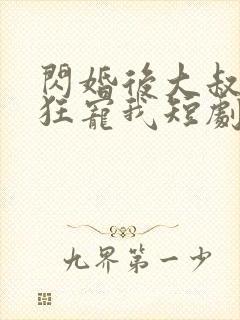 閃婚後大叔
狂寵我短劇
九界第一少